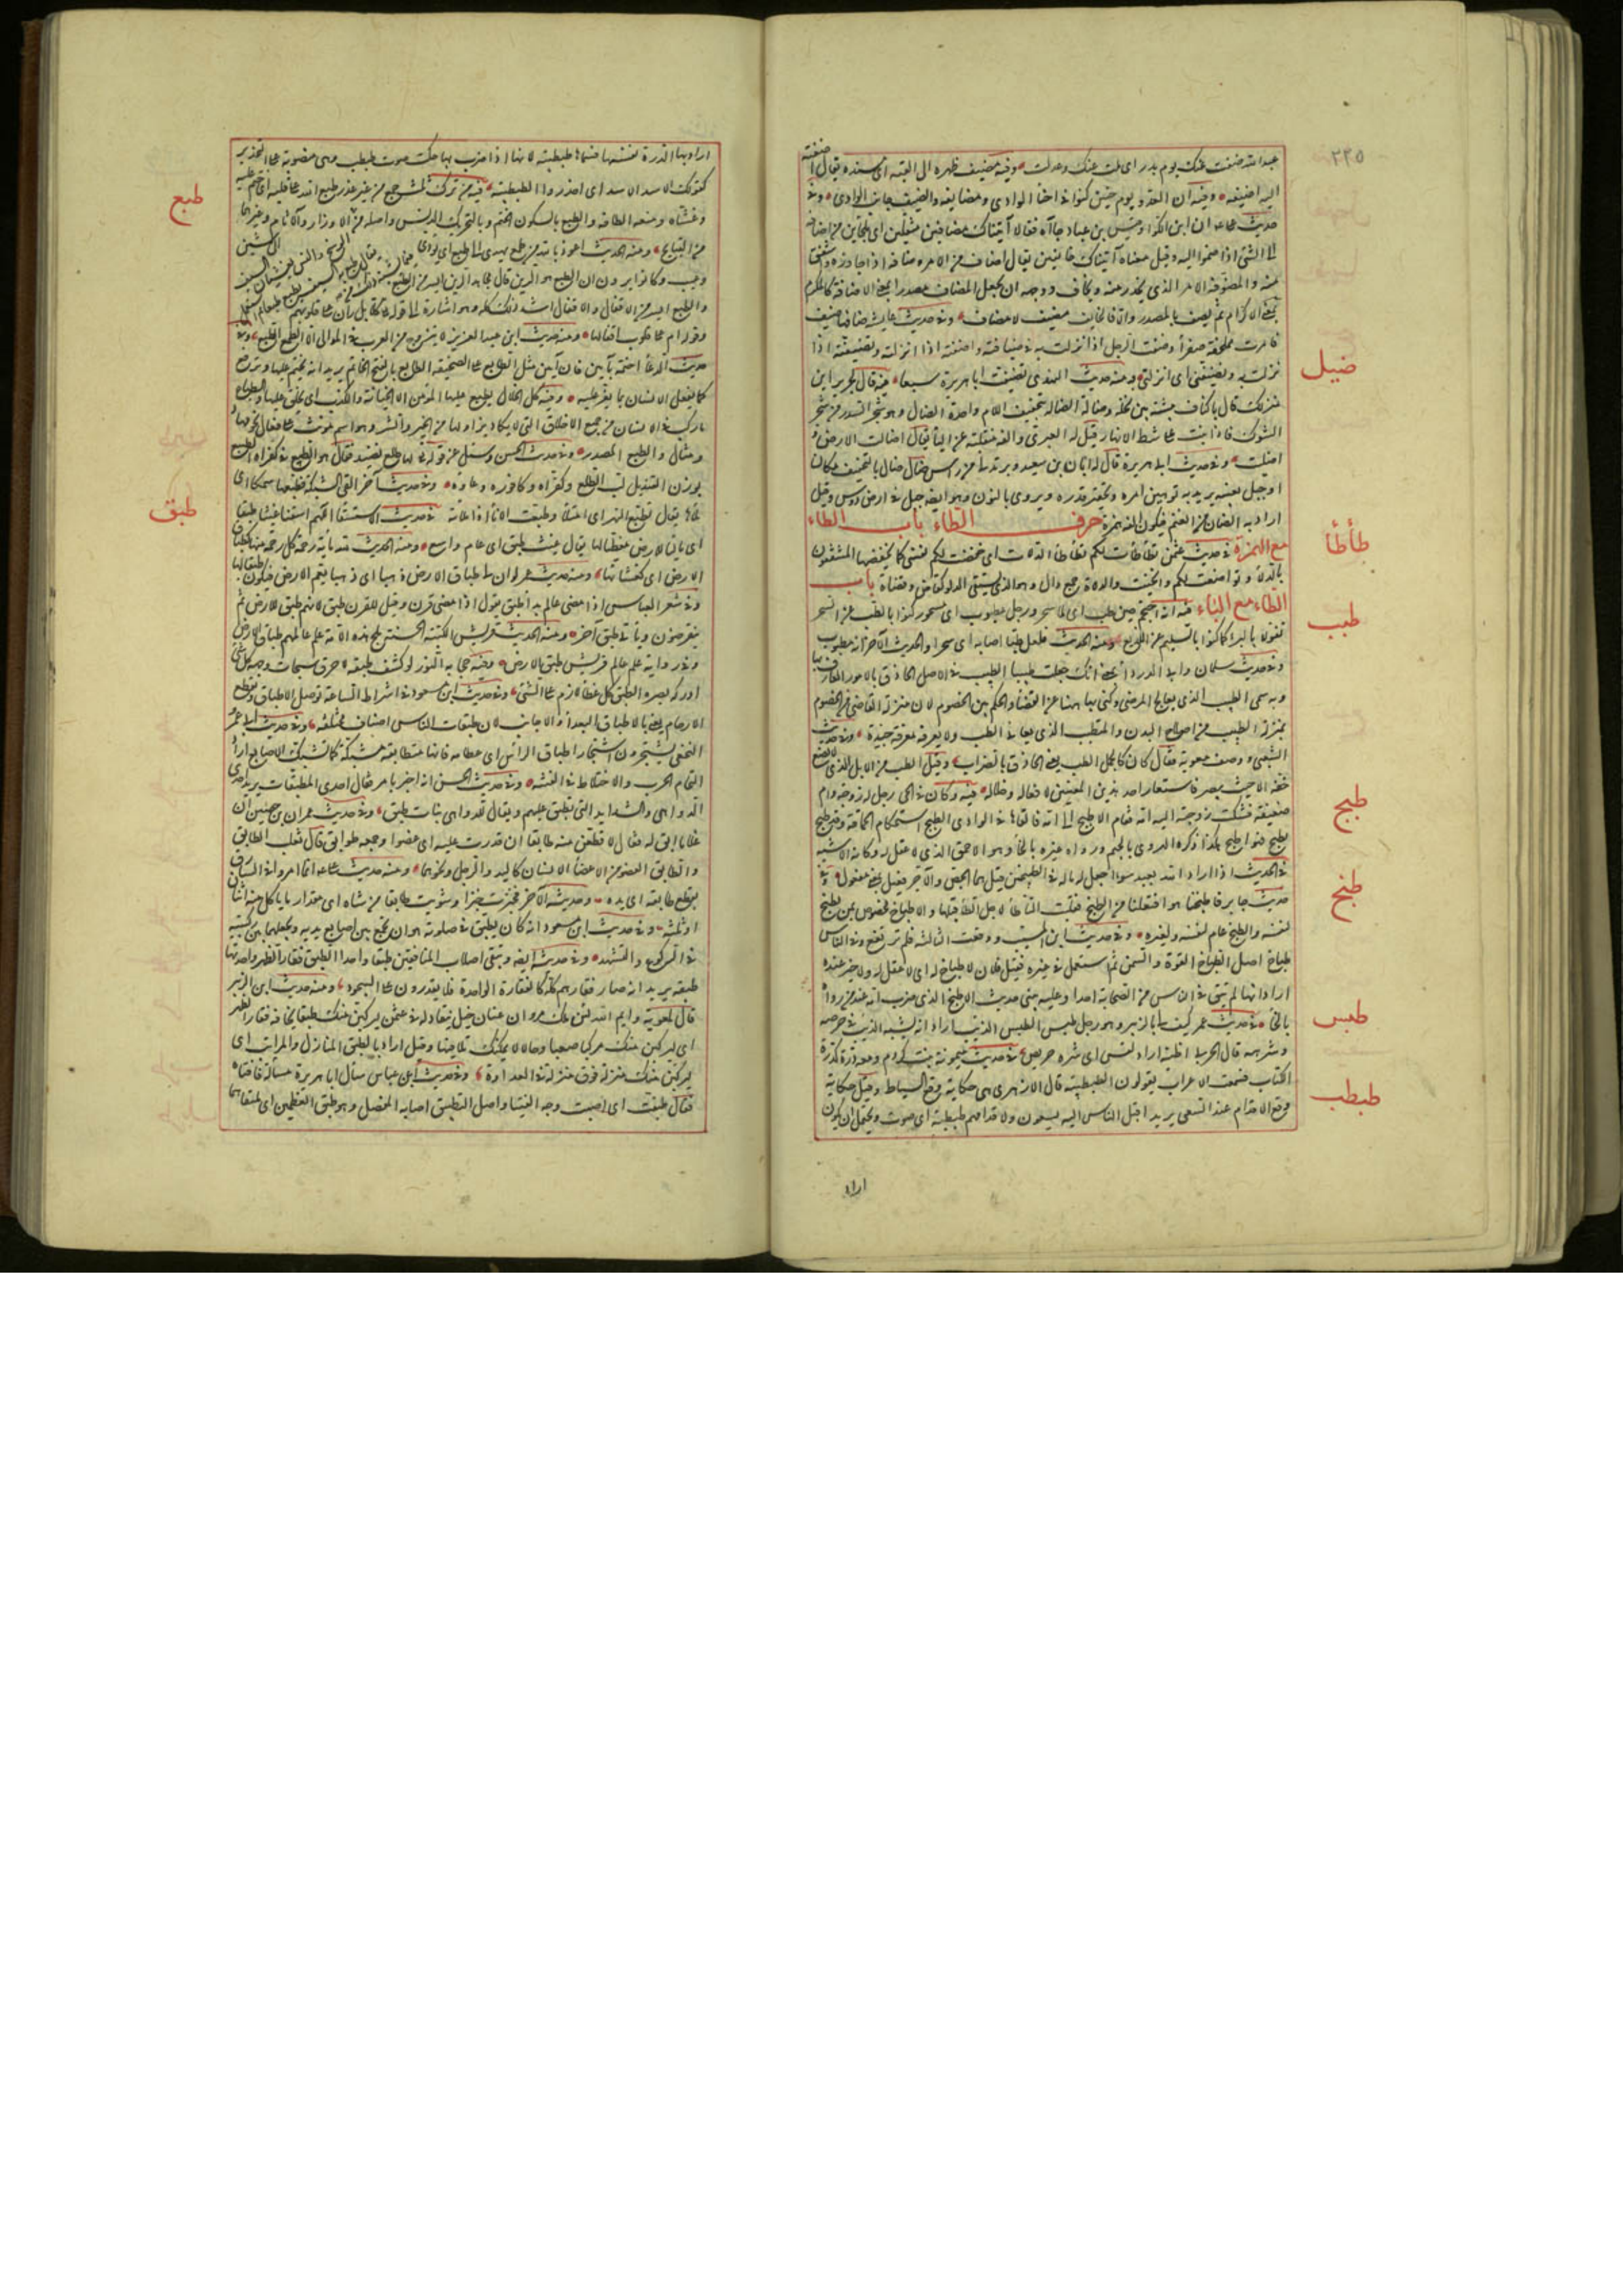 ٢٢٥
عبد الله ضفت عنك يوم بدر اى ملت عنك وعدلت وفيه مضيف ظهره الى القبة اى مسنده يقال اضفته
اليه اضيفه وفيه ان العدو يوم حنين كمنوا فى احناء الوادى ومضايفه والضيف جانب الوادى وفى
حديث على ان ابن الكوا وقيس بن عباد جاآه فقالا آتيناك مضافين مثقلين اى ملجأين من اضافه
الى الشئ اذا ضمه اليه وقيل معناه آتيناك خائفين يقال اضاف من الامر وضاف اذا حاذره واشفق
منه والمضوفة الامر الذى يحذر منه ويخاف ووجهه ان يجعل المضاف مصدرا بمعنى الاضافة كالمكرم
بمعنى الاكرام ثم يصف بالمصدر والا فالخائف مضيف لا مضاف وفى حديث عايشه ضافها ضيف
فامرت له بملحفة صفراء وضفت الرجل اذا نزلت به فى ضيافته واضفته اذا انزلته وتضيفته اذا
نزلت به وتضيفنى اى انزلنى ومنه حديث النهدى تضيفت ابا هريرة سبعا فيه قال لجرير اين
منزلك قال باكناف بيشة بين نخلة وضالة الضالة بتخفيف اللام واحدة الضال وهو شجر السدر من شجر
الشوك فاذا نبت على شط الانهار قيل له العبرى والفه منقلبة عن الياء يقال اضالت الارض و
اضيلت وفى حديث ابى هريرة قال له ابان بن سعيد وبر تدلى من رأس ضال ضال بالتخفيف مكان
او جبل بعينه يريد به توهين امره وتحقير قدره ويروى بالنون وهو ايضا جبل فى ارض دوس وقيل
اراد به الضأن من الغنم فيكون الفه همزة حرف الطاء باب الطاء
مع الهمزة فى حديث عثمن تطأطأت لكم تطأطأ الدلاة اى خفضت لكم نفسى كما يخفضها المستقون
بالدلاء وتواضعت لكم وانحنيت والدلاة جمع دال وهو الذى يستقى الدلو كقاض وقضاة باب
الطاء مع الباء فيه انه احتجم حين طب اى لما سحر ورجل مطبوب اى مسحور كنوا بالطب عن السحر
تفولا بالبرء كما كنوا بالسليم عن اللديغ ومنه الحديث فلعل طبا اصابه اى سحرا والحديث الآخر انه مطبوب
وفى حديث سلمان وابى الدرداء بلغنى انك جعلت طبيبا الطبيب فى الاصل الحاذق بالامور العارف بها
وبه سمى الطبيب الذى يعالج المرضى وكنى به ههنا عن القضاء والحكم بين الخصوم لان منزلة القاضى من الخصوم
بمنزلة الطبيب من اصلاح البدن والمتطبب الذى يعانى الطب ولا يعرفه معرفة جيدة وفى حديث
الشعبى ووصف معوية فقال كان كالجمل الطب يعنى الحاذق بالضراب وقيل الطب من الابل الذى لا يضع
خفه الا حيث يبصر فاستعار احد هذين المعنيين لافعاله وخلاله فيه وكان فى الحى رجل له زوجة وام
ضعيفة فشكت زوجته اليه امه فقام الاطبج الى امه فالقاها فى الوادى الطبج استحكام الحماقة وقد طبج
يطبج فهو اطبج هكذا ذكره الهروى بالجيم ورواه غيره بالخاء وهو الاحمق الذى لا عقل له وكانه الاشبه
فى الحديث اذا اراد الله بعبد سوءا جعل ماله فى الطبيخين قيل هما الجص والآجر فعيل بمعنى مفعول وفى
حديث جابر فاطبخنا هو افتعلنا من الطبخ فقلبت التاء طاء لاجل الطاء قبلها والاطباخ مخصوص بمن يطبخ
لنفسه والطبخ عام لنفسه ولغيره وفى حديث ابن المسيب ووقعت الثالثة فلم ترتفع وفى الناس
طباخ اصل الطباخ القوة والسمن ثم استعمل فى غيره فقيل فلان لا طباخ له اى لا عقل له ولا خير عنده
اراد انها لم تبق فى الناس من الصحابة احدا وعليه يبنى حديث الاطبخ الذى ضرب امه عند من رواه
بالخاء فى حديث عمر كيف لى بالزبير وهو رجل طبس الطبس الذئب اراد انه يشبه الذئب فى حرصه
وشرهه قال الحربى اظنه اراد لقس اى شره حريص فى حديث ميمونة بنت كردم ومعه درة كدرة
الكتاب فسمعت الاعراب يقولون الطبطبية قال الازهرى هى حكاية وقع السياط وقيل حكاية
وقع الاقدام عند السعى يريد اقبل الناس اليه يسعون ولاقدامهم طبطبة اى صوت ويحتمل ان يكون
اراد
ضيل
طأطأ
طبب
طبج
طبخ
طبس
طبطب
اراد بها الدرة نفسها فسماها طبطبية لانها اذا ضرب بها حكت صوت طبطب وهى منصوبة على التحذير
كقولك الاسد الاسد اى احذروا الطبطبية فيه من ترك ثلث جمع من غير عذر طبع الله على قلبه اى ختم عليه
وغشاه ومنعه الطافه والطبع بالسكون الختم وبالتحريك الدنس واصله من الاوزار والآثام وغيرهما
من القبايح ومنه الحديث اعوذ بالله من طمع يهدى الى طبع اى يؤدى الى شين
وعيب وكانوا يرون ان الطبع هو الرين قال مجاهد الرين ايسر من الطبع
والطبع ايسر من الاقفال والاقفال اشد ذلك كله وهو اشارة الى قوله تعالى كلا بل ران على قلوبهم
وقوله ام على قلوب اقفالها ومنه حديث ابن عبد العزيز لا يتزوج من العرب فى الموالى الا الطمع الطبع وفى
حديث الدعاء اختمه بآمين فان آمين مثل الطابع على الصحيفة الطابع بالفتح الخاتم يريد انه يختم عليها وترفع
كما يفعل الانسان بما يعز عليه وفيه كل الخلال يطبع عليها المؤمن الا الخيانة والكذب اى يخلق عليها والطباع
ما ركب فى الانسان من جميع الاخلاق التى لا يكاد يزاولها من الخير والشر وهو اسم مؤنث على فعال نحو مهاد
ومثال والطبع المصدر وفى حديث الحسن وسئل عن قوله لها طلع نضيد فقال هو الطبيع فى كفراه الطبيع
بوزن القنديل لب الطلع وكفراه وكافوره وعاؤه وفى حديث آخر القى الشبكة فطبعها سمكا اى
ملأها يقال تطبع النهر اى امتلأ وطبعت الاناء اذا ملأته فى حديث الاستسقاء اللهم اسقنا غيثا طبقا
اى مالئا للارض مغطيا لها يقال غيث طبق اى عام واسع ومنه الحديث لله ماية رحمة كل رحمة منها كطباق
الارض اى كغشائها ومنه حديث عمر لو ان لى طباق الارض ذهبا اى ذهبا يعم الارض فيكون طبقا لها
وفى شعر العباس اذا مضى عالم بدا طبق يقول اذا مضى قرن بدا قرن وقيل للقرن طبق لانهم طبق للارض ثم
ينقرضون ويأتى طبق آخر ومنه الحديث قريش الكتبة الحسبة ملح هذه الامة علم عالمهم طباق الارض
وفى رواية علم عالم قريش طبق الارض وفيه حجابه النور لو كشف طبقه لاحرق سبحات وجهه كل شئ
ادركه بصره الطبق كل غطاء لازم على الشئ وفى حديث ابن مسعود فى اشراط الساعة توصل الاطباق وتقطع
الارحام يعنى بالاطباق البعداء والاجانب لان طبقات الناس اصناف مختلفة وفى حديث ابى عمرو
النخعى يشتجرون اشتجار اطباق الرأس اى عظامه فانها متطابقة مشتبكة كما تشتبك الاصابع اراد
التحام الحرب والاختلاط فى الفتنة وفى حديث الحسن انه اخبر بامر فقال احدى المطبقات يريد احدى
الدواهى والشدايد التى تطبق عليهم ويقال للدواهى بنات طبق وفى حديث عمران بن حصين ان
غلاما ابق له فقال لاقطعن منه طابقا ان قدرت عليه اى عضوا وجمعه طوابق قال ثعلب الطابق
والطابق العضو من اعضاء الانسان كاليد والرجل ونحوهما ومنه حديث على انما امر فى السارق
بقطع طابقه اى يده وحديثه الآخر فخبزت خبزا وشويت طابقا من شاة اى مقدار ما ياكل منه اثنان
او ثلثة وفى حديث ابن مسعود انه كان يطبق فى صلوته هو ان يجمع بين اصابع يديه ويجعلهما بين ركبتيه
فى الركوع والتشهد وفى حديثه ايضا وتبقى اصلاب المنافقين طبقا واحدا الطبق فقار الظهر واحدتها
طبقة يريد انه صار فقارهم كله كالفقارة الواحدة فلا يقدرون على السجود ومنه حديث ابن الزبير
قال لمعوية وايم الله لئن ملك مروان عنان خيل تنقاد له فى عثمن ليركبن منك طبقا تخافه فقار الظهر
اى ليركبن منك مركبا صعبا وحالا لا يمكنك تلافيها وقيل اراد بالطبق المنازل والمراتب اى
ليركبن منك منزلة فوق منزلة فى العداوة وفى حديث ابن عباس سأل ابا هريرة مسألة فافتاه
فقال طبقت اى اصبت وجه الفتيا واصل التطبيق اصابة المفصل وهو طبق العظمين اى ملتقاهما
طبع
طبق